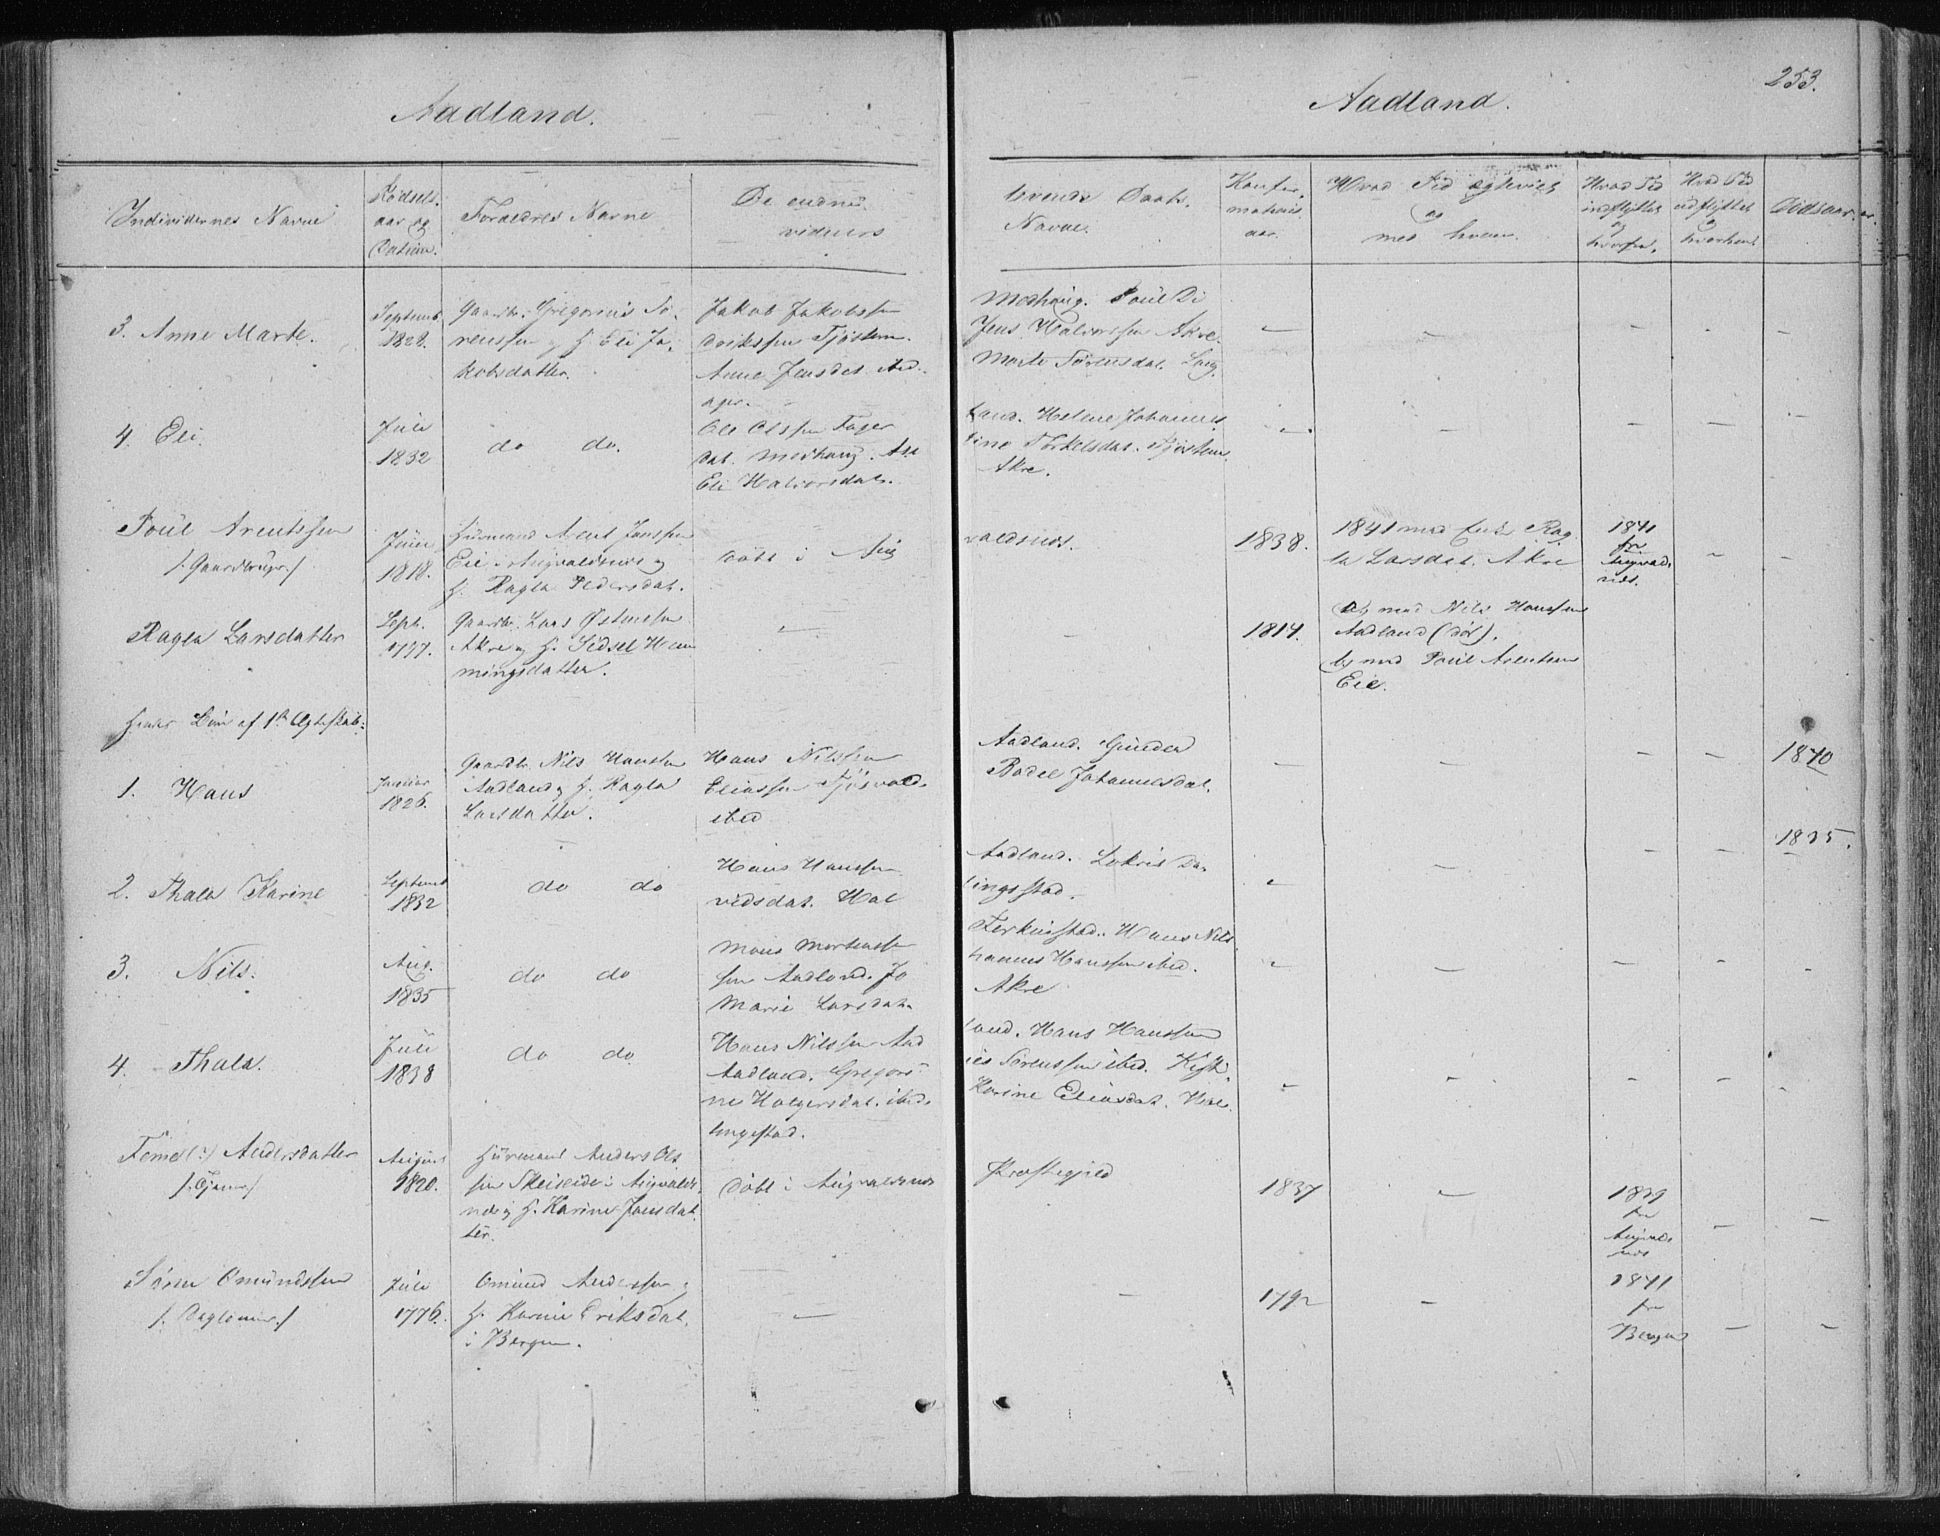 253.
Aadland. Aadland.
Individernes Navne
Fødsels-
aar og
Datum.
Foraldres Navne
De endnu
vidners
levende Daab.
Navne.
Konfir-
mations
aar.
Hvad Tid ægteviet
og
med hvem.
Hvad Tid
indflyttet
og
hvorfra.
Hvad Tid
udflyttet
og
hvorhen
Dødsaar.
3. Anne Marte.
Septemb.
1828.
Gaardbr. Gregorius Sø-
renssen og H. Eli Ja-
kobsdatter.
Jakob Jakobssen
Tjøstem.
Anne Jensdat.
Medhaug. Poul Di
Jens Halvorssen Akre.
Marte Sørensdat.
4. Eli.
Juli
1832
do do.
Ole Olssen Fager
dat. Medhaug.
Eli Halvorsdat.
land. Helene Johannes
Torkelsdat. Tjøstem
Akre.
Poul Arentssen
/: Gaardbruger :/
1818.
Huusmand Arent Janssen
Eie i Augvaldsnes og
H. Ragla Pedersdat.
Døbt i Aug
valdsnes.
1838.
1841 med Enke Rag
la Larsdat. Akre
1841
fra
Augvads
nes.
Ragla Larsdatter
Sept.
1797.
Gaardbr. Lars Østenssen
Akre og H. Sidsel Hem
mingsdatter.
1814.
a, med Nils Hanssen
Aadland (død).
b, med Poul Arentssen
Eie.
Hendes Børn af 1ste Ægteskab:
1. Hans
Januar
1826.
Gaardbr. Nils Hanssen
Aadland og H. Ragla
Larsdatter.
Hans Nilssen
Eliassen Tjøsvold
ibid
Aadland. Gunder
Badel Johannesdat.
1840
2. Thala Karine
Septemb
1832
do do
Hans Hanssen
vidsdat. Hal
Aadland. Lokris Da-
lingsstad.
1835.
3. Nils.
Aug.
1835
do do
Mons Mortenssen
sen Aadland. Jo
Marie Larsdat.
Ferkinstad. Hans Nils
hannes Hanssen ibid.
Akre
4. Thala.
Juli
1838
do do
Hans Nilssen Aad
Aadland. Gregori
ne Holgersdat. ibid.
lingestad.
land. Hans Hanssen
Sørenssen ibid.
Karine Eliasdat. Hal
Andersdatter
/: Tjener :/
August
1820.
Huusmand Anders Ols
sen Skeiseide i Augvalds
nes og H. Karine Jansdat.
ter.
Døbt i Augvaldsnes
Præstegjeld
1837
1839
fra
Augvads
nes
Søren Omundssen
/: Daglønner :/
Juli
1776.
Omund Anderssen og
H. Karine Eriksdat.
i Bergen.
1792
1841
fra
Bergen